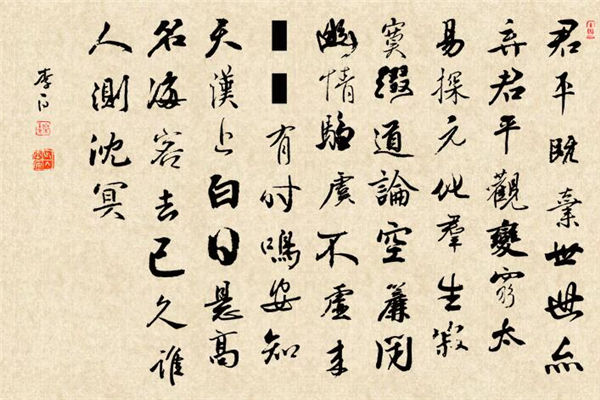 君平既棄世世亦
弃君平觀變窮太
易探元化羣生寂
寞綴道論空簾閉
幽情騶虞不虛来
■■有时鳴安知
天漢上白日悬高
名海客去已久誰
人測沈冥
李白